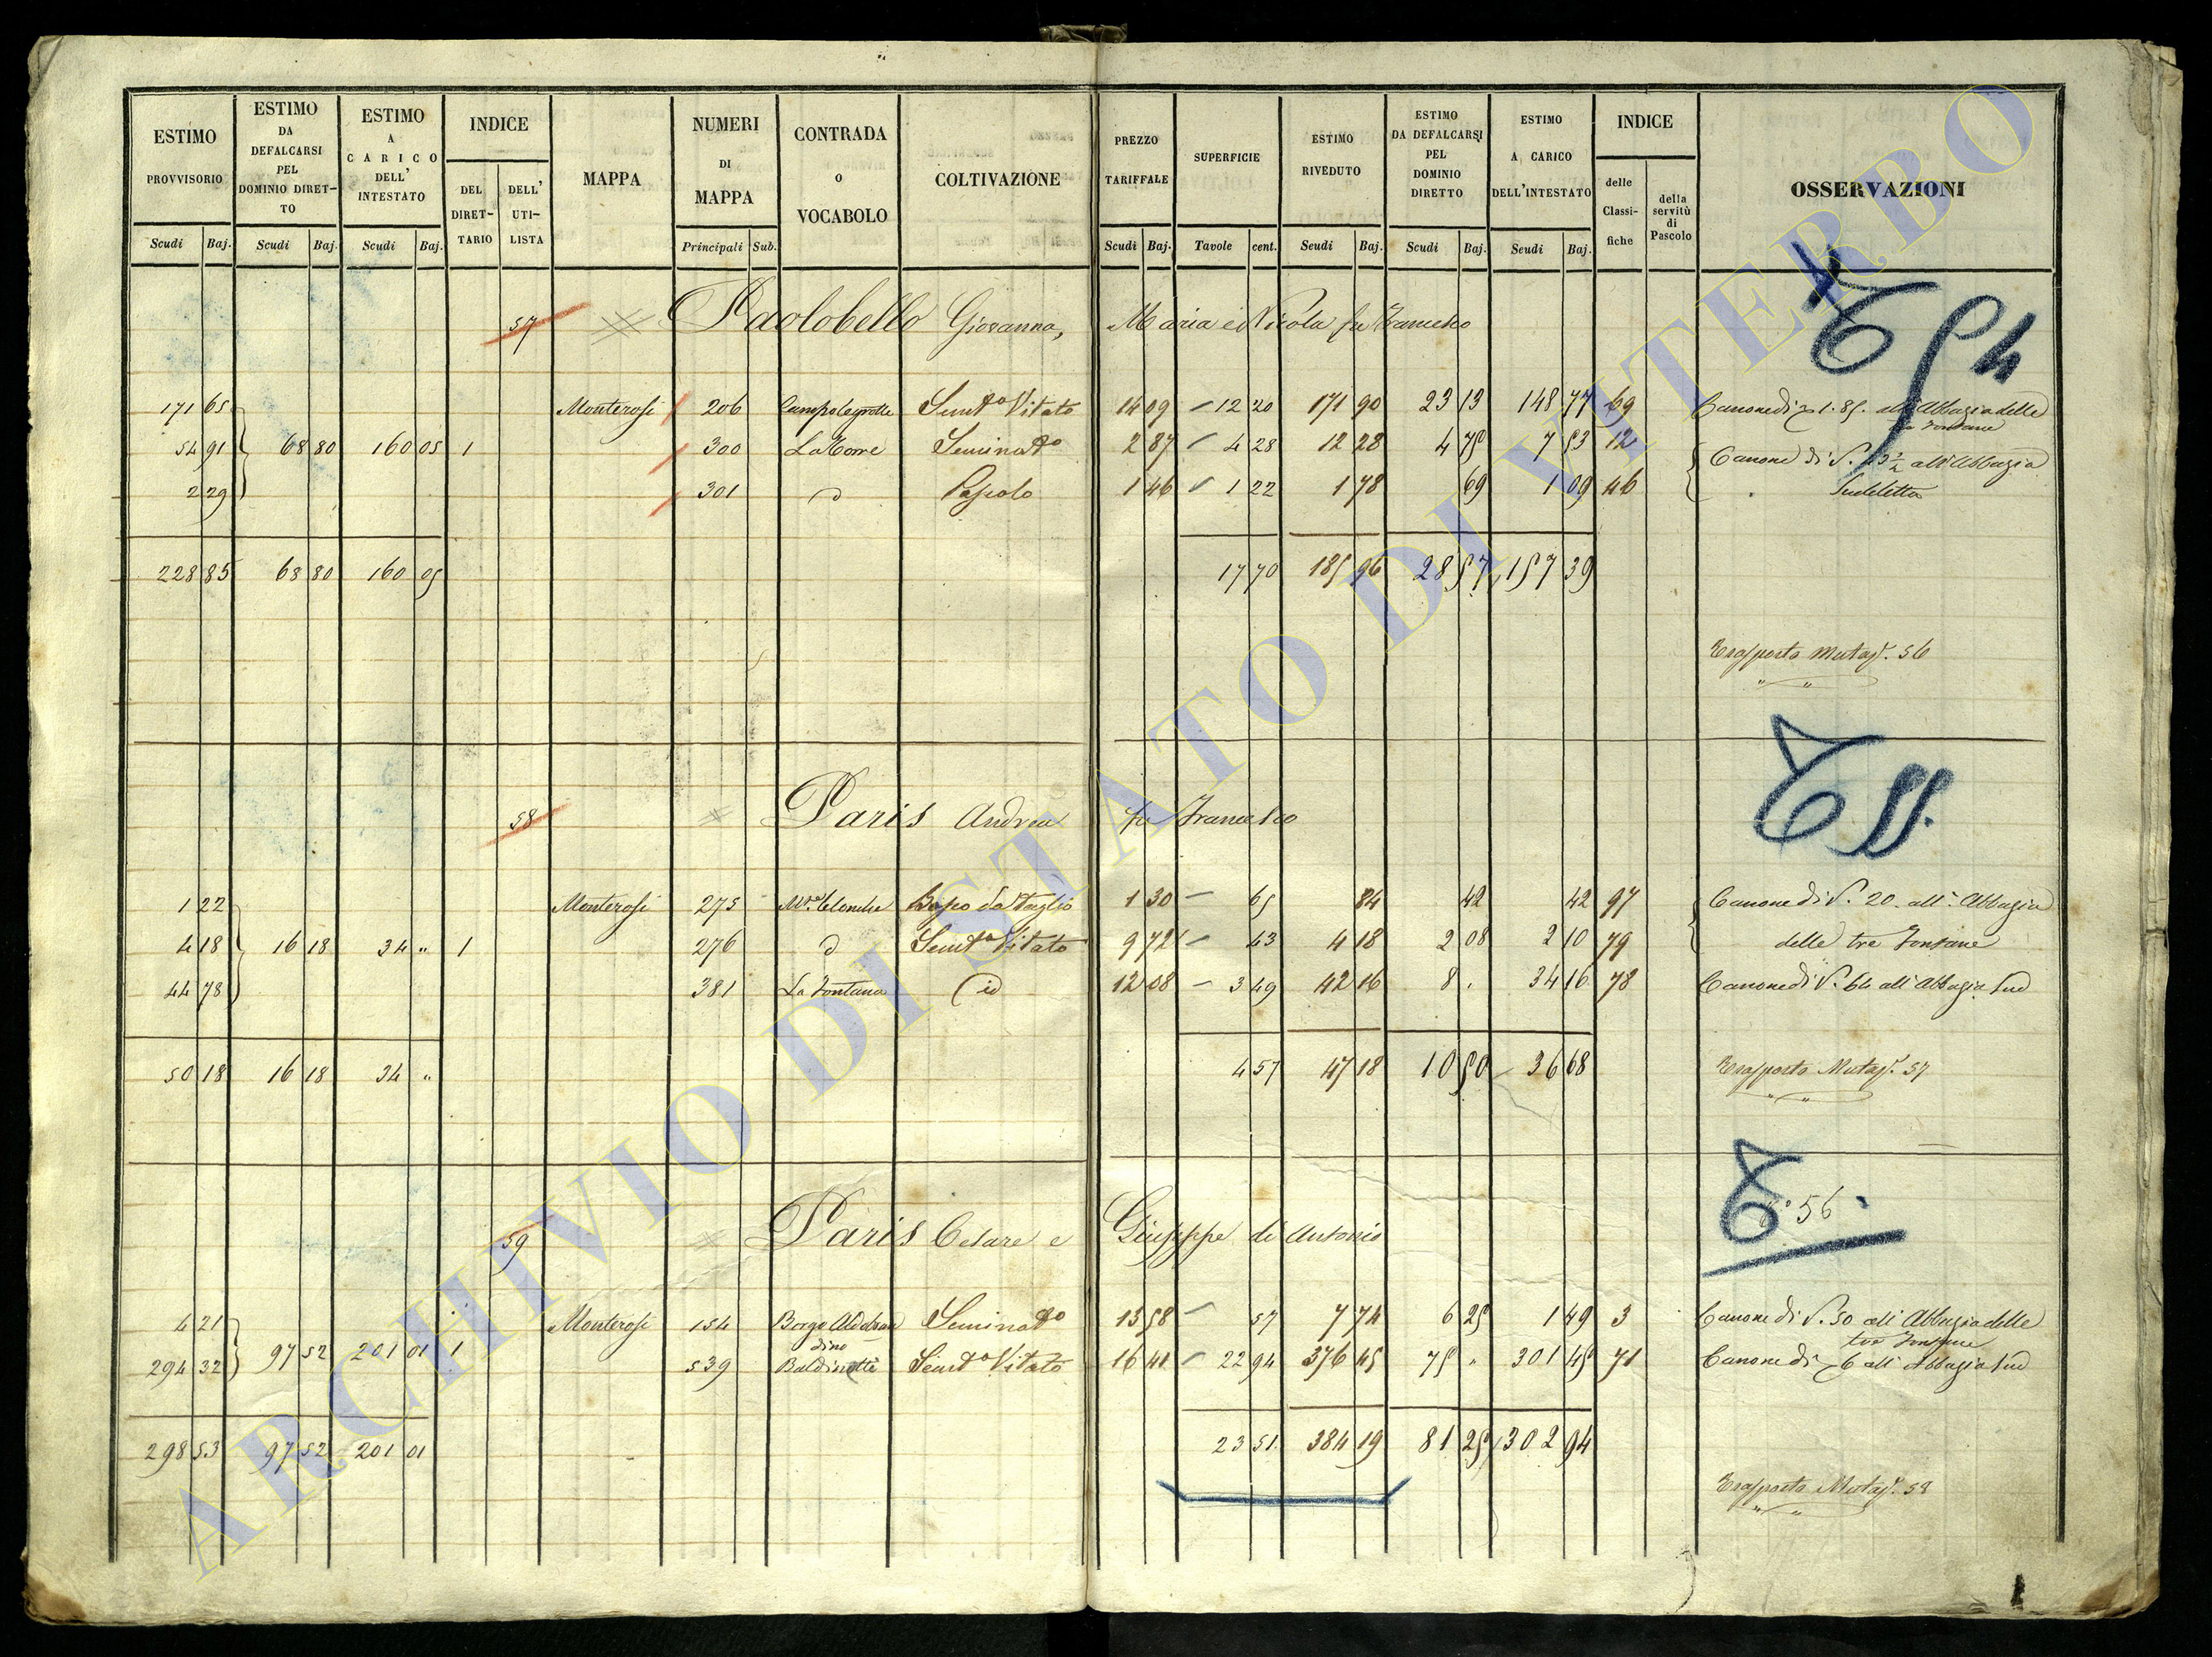 ESTIMO PROVVISORIO
ESTIMO DA DEFALCARSI PEL DOMINIO DIRET-TO
ESTIMO A CARICO DELL' INTESTATO
INDICE
DEL DIRET-TARIO
DELL' UTI-LISTA
MAPPA
NUMERI DI MAPPA
CONTRADA O VOCABOLO
COLTIVAZIONE
PREZZO TARIFFALE
SUPERFICIE
ESTIMO RIVEDUTO
ESTIMO DA DEFALCARSI PEL DOMINIO DIRETTO
ESTIMO A CARICO DELL'INTESTATO
INDICE
delle Classi-fiche
della servitù di Pascolo
OSSERVAZIONI
Scudi Baj. Scudi Baj. Scudi Baj. Principali Sub. Scudi Baj. Tavole cent. Scudi Baj. Scudi Baj. Scudi Baj.
57 Paolobello Giovanna, Maria e Nicola fu Francesco 54
171 65 Monterosi 206 Campolegrotte Semto Vitato 14 09 12 20 171 90 23 13 148 77 69 Canone di 1.85. all'Abbazia delle
tre Fontane
54 91 68 80 160 05 1 300 La Torre Seminato 2 87 4 28 12 28 4 75 7 53 12 Canone di 23 1/2 all'Abbazia
2 29 301 Pascolo 1 46 1 22 1 78 69 1 09 46 Suddetta
228 85 68 80 160 05 17 70 185 96 28 57 157 39
Trasporto Mutaz. 56
58 Paris Andrea fu Francesco 55.
1 22 Monterosi 275 65 1 30 84 42 42 97 Canone di 20. all'Abbazia
4 18 16 18 34 " 1 276 Semto Vitato 9 72 43 4 18 2 08 2 10 79 delle tre Fontane
44 78 381 La Fontana id 12 08 3 49 42 16 8 . 34 16 78 Canone di 64 all'Abbazia sud
50 18 16 18 34 " 4 57 47 18 10 50 36 68 Trasporto Mutaz. 57
59 Paris Cesare e Giuseppe di Antonio 56
4 21 Monterosi 154 Borgo Aldobran Seminato 13 58 57 7 74 6 25 1 49 3 Canone di 50 all'Abbazia delle
dino tre Fontane
294 32 97 52 201 01 1 539 Baldinotti Semto Vitato 16 41 22 94 376 45 75 " 301 45 71 Canone di 6 all'Abbazia sud
298 53 97 52 201 01 23 51. 384 19 81 25 302 94
Trasporto Mutaz. 58
ARCHIVIO DI STATO DI VITERBO